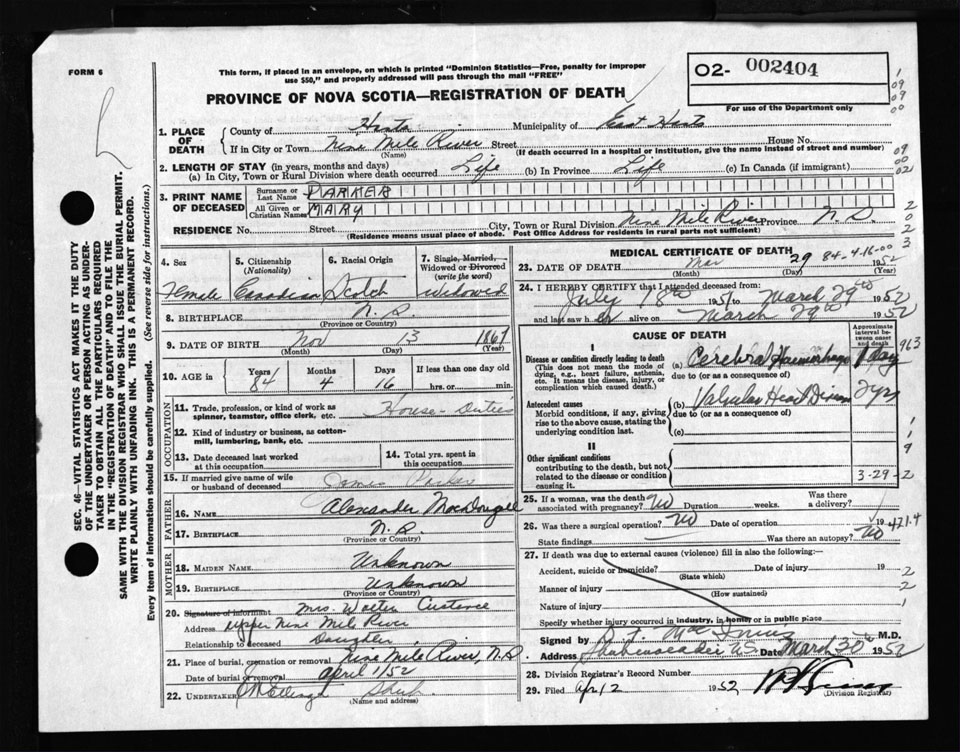 FORM 6
This form, if placed in an envelope, on which is printed "Dominion Statistics—Free, penalty for improper
use $50," and properly addressed will pass through the mail "FREE"
O2- 002404
For use of the Department only
PROVINCE OF NOVA SCOTIA—REGISTRATION OF DEATH
1. PLACE OF DEATH
County of Hants Municipality of East Hants
If in City or Town Nine Mile River Street House No.
(Name) (If death occurred in a hospital or institution, give the name instead of street and number)
2. LENGTH OF STAY (in years, months and days)
(a) In City, Town or Rural Division where death occurred Life (b) In Province Life (c) In Canada (if immigrant)
3. PRINT NAME OF DECEASED
Surname or Last Name PARKER
All Given or Christian Names MARY
RESIDENCE No. Street City, Town or Rural Division Nine Mile River Province N.S.
(Residence means usual place of abode. Post Office Address for residents in rural parts not sufficient)
4. Sex
Female
5. Citizenship (Nationality)
Canadian
6. Racial Origin
Scotch
7. Single, Married, Widowed or Divorced (write the word)
Widowed
8. BIRTHPLACE N.S.
(Province or Country)
9. DATE OF BIRTH Nov 13 1867
(Month) (Day) (Year)
10. AGE in Years Months Days If less than one day old
84 4 16 hrs. or min.
OCCUPATION
11. Trade, profession, or kind of work as spinner, teamster, office clerk, etc. House-Duties
12. Kind of industry or business, as cotton-mill, lumbering, bank, etc.
13. Date deceased last worked at this occupation
14. Total yrs. spent in this occupation
15. If married give name of wife or husband of deceased James Parker
FATHER
16. NAME Alexander MacDougall
17. BIRTHPLACE N.S.
(Province or Country)
MOTHER
18. MAIDEN NAME Unknown
19. BIRTHPLACE Unknown
(Province or Country)
20. Signature of informant Mrs. Walter Custance
Address Upper Nine Mile River
Relationship to deceased Daughter
21. Place of burial, cremation or removal Nine Mile River, N.S.
Date of burial or removal April 1/52
22. UNDERTAKER
(Name and address)
MEDICAL CERTIFICATE OF DEATH
23. DATE OF DEATH Mar 29 84-4-16-00 1952
(Month) (Day) (Year)
24. I HEREBY CERTIFY that I attended deceased from:
July 18th 1951 to March 29th 1952
and last saw her alive on March 29th 1952
CAUSE OF DEATH
Approximate interval between onset and death
I
Disease or condition directly leading to death
(This does not mean the mode of dying, e.g., heart failure, asthenia, etc. It means the disease, injury, or complication which caused death.)
(a) Cerebral Haemorrhage 1 day
due to (or as a consequence of)
Antecedent causes
Morbid conditions, if any, giving rise to the above cause, stating the underlying condition last.
(b) Valvular Heart Disease 2 yrs
due to (or as a consequence of)
(c)
II
Other significant conditions
contributing to the death, but not related to the disease or condition causing it.
3-29-2
25. If a woman, was the death associated with pregnancy? No Duration weeks. Was there a delivery?
26. Was there a surgical operation? No Date of operation 19
State findings Was there an autopsy? No
421.4
27. If death was due to external causes (violence) fill in also the following:—
Accident, suicide or homicide? Date of injury 19
(State which)
Manner of injury
(How sustained)
Nature of injury
Specify whether injury occurred in industry, in home, or in public place
Signed by M.D.
Address Shubenacadie, N.S. Date March 30th 1952
28. Division Registrar's Record Number
29. Filed Apr 2 1952
(Division Registrar)
SEC. 46—VITAL STATISTICS ACT MAKES IT THE DUTY
OF THE UNDERTAKER OR PERSON ACTING AS UNDER-
TAKER TO OBTAIN ALL THE PARTICULARS REQUIRED
IN THE "REGISTRATION OF DEATH" AND TO FILE THE
SAME WITH THE DIVISION REGISTRAR WHO SHALL ISSUE THE BURIAL PERMIT.
WRITE PLAINLY WITH UNFADING INK. THIS IS A PERMANENT RECORD.
Every item of information should be carefully supplied. (See reverse side for instructions.)